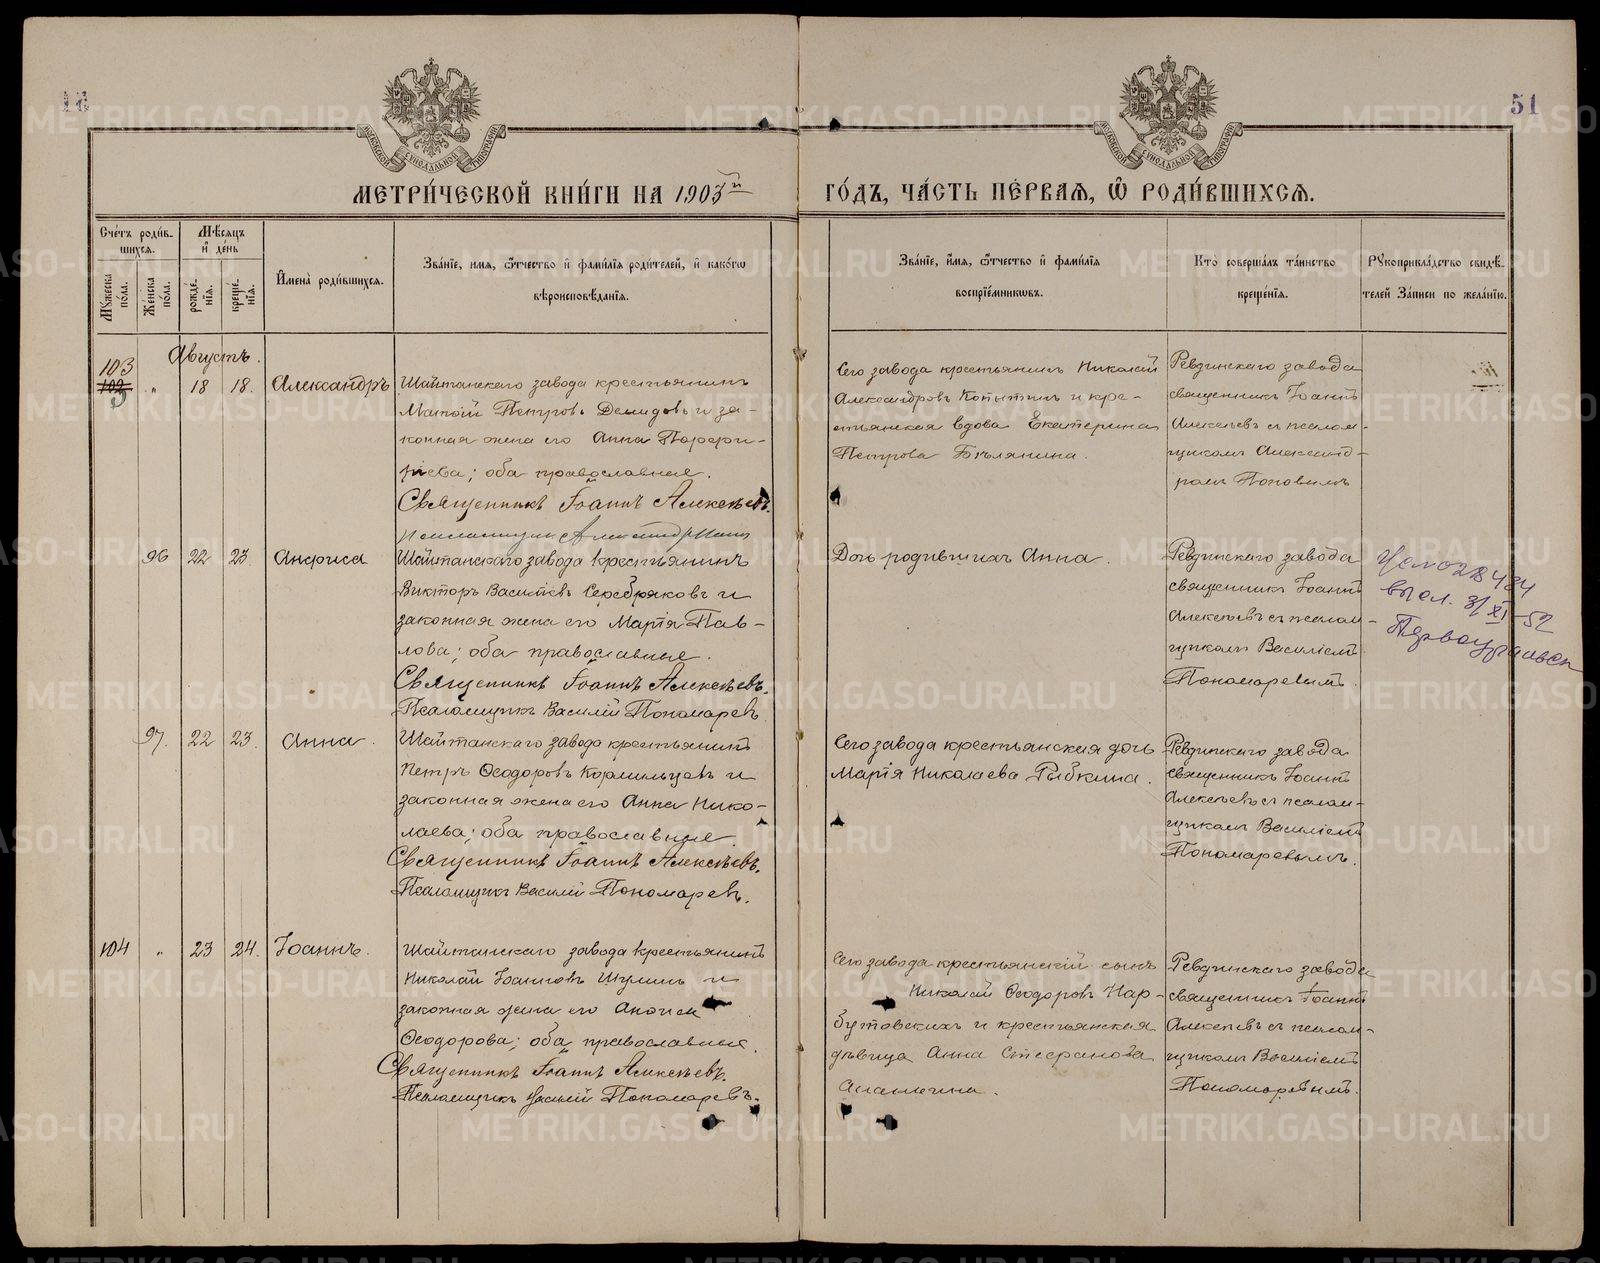 51
МОСКОВСКОЙ СѴНОДАЛЬНОЙ ТИПОГРАФІИ
МОСКОВСКОЙ СѴНОДАЛЬНОЙ ТИПОГРАФІИ
МЕТРИ́ЧЕСКОЙ КНИ́ГИ НА 1903й
ГО́ДЪ, ЧА́СТЬ ПЕ́РВАЯ, Ѡ҃ РОДИ́ВШИХСЯ.
Сче́тъ роди́в-
шихся.
Му́жеска
по́ла.
Же́нска
по́ла.
Мѣ́сяцъ
и҆ де́нь
рожде́-
нїя.
креще́-
нїя.
И҆мена̀ роди́вшихся.
Зва́нїе, и҆́мя, ѻ҆́тчество и҆ фами́лїя роди́телей, и҆ како́гѡ
вѣроисповѣ́данїя.
Зва́нїе, и҆́мя, ѻ҆́тчество и҆ фами́лїя
воспрїе́мникѡвъ.
Кто̀ соверша́лъ та́инство
креще́нїя.
Рꙋкоприкла́дство свидѣ́-
телей за́писи по жела́нїю.
Августъ.
103
102
„ 18 18. Александръ
Шайтанскаго завода крестьянинъ
Петровъ Демидовъ и за-
конная жена его Анна Порфи-
рiева; оба православные.
Священникъ Іоаннъ Алексѣевъ.
Сего завода крестьянинъ Николай
Александровъ Копытинъ и кре-
стьянская вдова Екатерина
Петрова Бѣлянина.
Ревдинскаго завода
священникъ Іоаннъ
Алексѣевъ съ псалом-
щикомъ Александ-
ромъ Поповымъ
96 22 23. Анфиса
Шайтанскаго завода крестьянинъ
Викторъ Василіевъ Серебряковъ и
законная жена его Марія Пав-
лова; оба православные.
Священникъ Іоаннъ Алексѣевъ.
Псаломщикъ Василій Пономаревъ
Дочь родившихъ Анна.
Ревдинскаго завода
священникъ Іоаннъ
Алексѣевъ съ псалом-
щикомъ Василіемъ
Пономаревымъ.
высл. 3/XI-52
Первоуральск
97. 22 23. Анна.
Шайтанскаго завода крестьянинъ
Петръ Ѳеодоровъ Кормильцевъ и
законная жена его Анна Нико-
лаева; оба православные.
Священникъ Іоаннъ Алексѣевъ.
Псаломщикъ Василій Пономаревъ.
Сего завода крестьянская дочь
Марія Николаева Рыбкина.
Ревдинскаго завода
священникъ Іоаннъ
Алексѣевъ съ псалом-
щикомъ Василіемъ
Пономаревымъ.
104 „ 23 24. Іоаннъ.
Шайтанскаго завода крестьянинъ
Николай Іоанновъ Шулинъ и
законная жена его
Ѳеодорова; оба православные.
Священникъ Іоаннъ Алексѣевъ.
Псаломщикъ Василій Пономаревъ.
Сего завода крестьянскій сынъ
Николай Ѳеодоровъ Нар-
бутовскихъ и крестьянская
дѣвица Анна Стефанова
Ревдинскаго завода
священникъ Іоаннъ
Алексѣевъ съ псалом-
щикомъ Василіемъ
Пономаревымъ.
METRIKI.GASO-URAL.RU